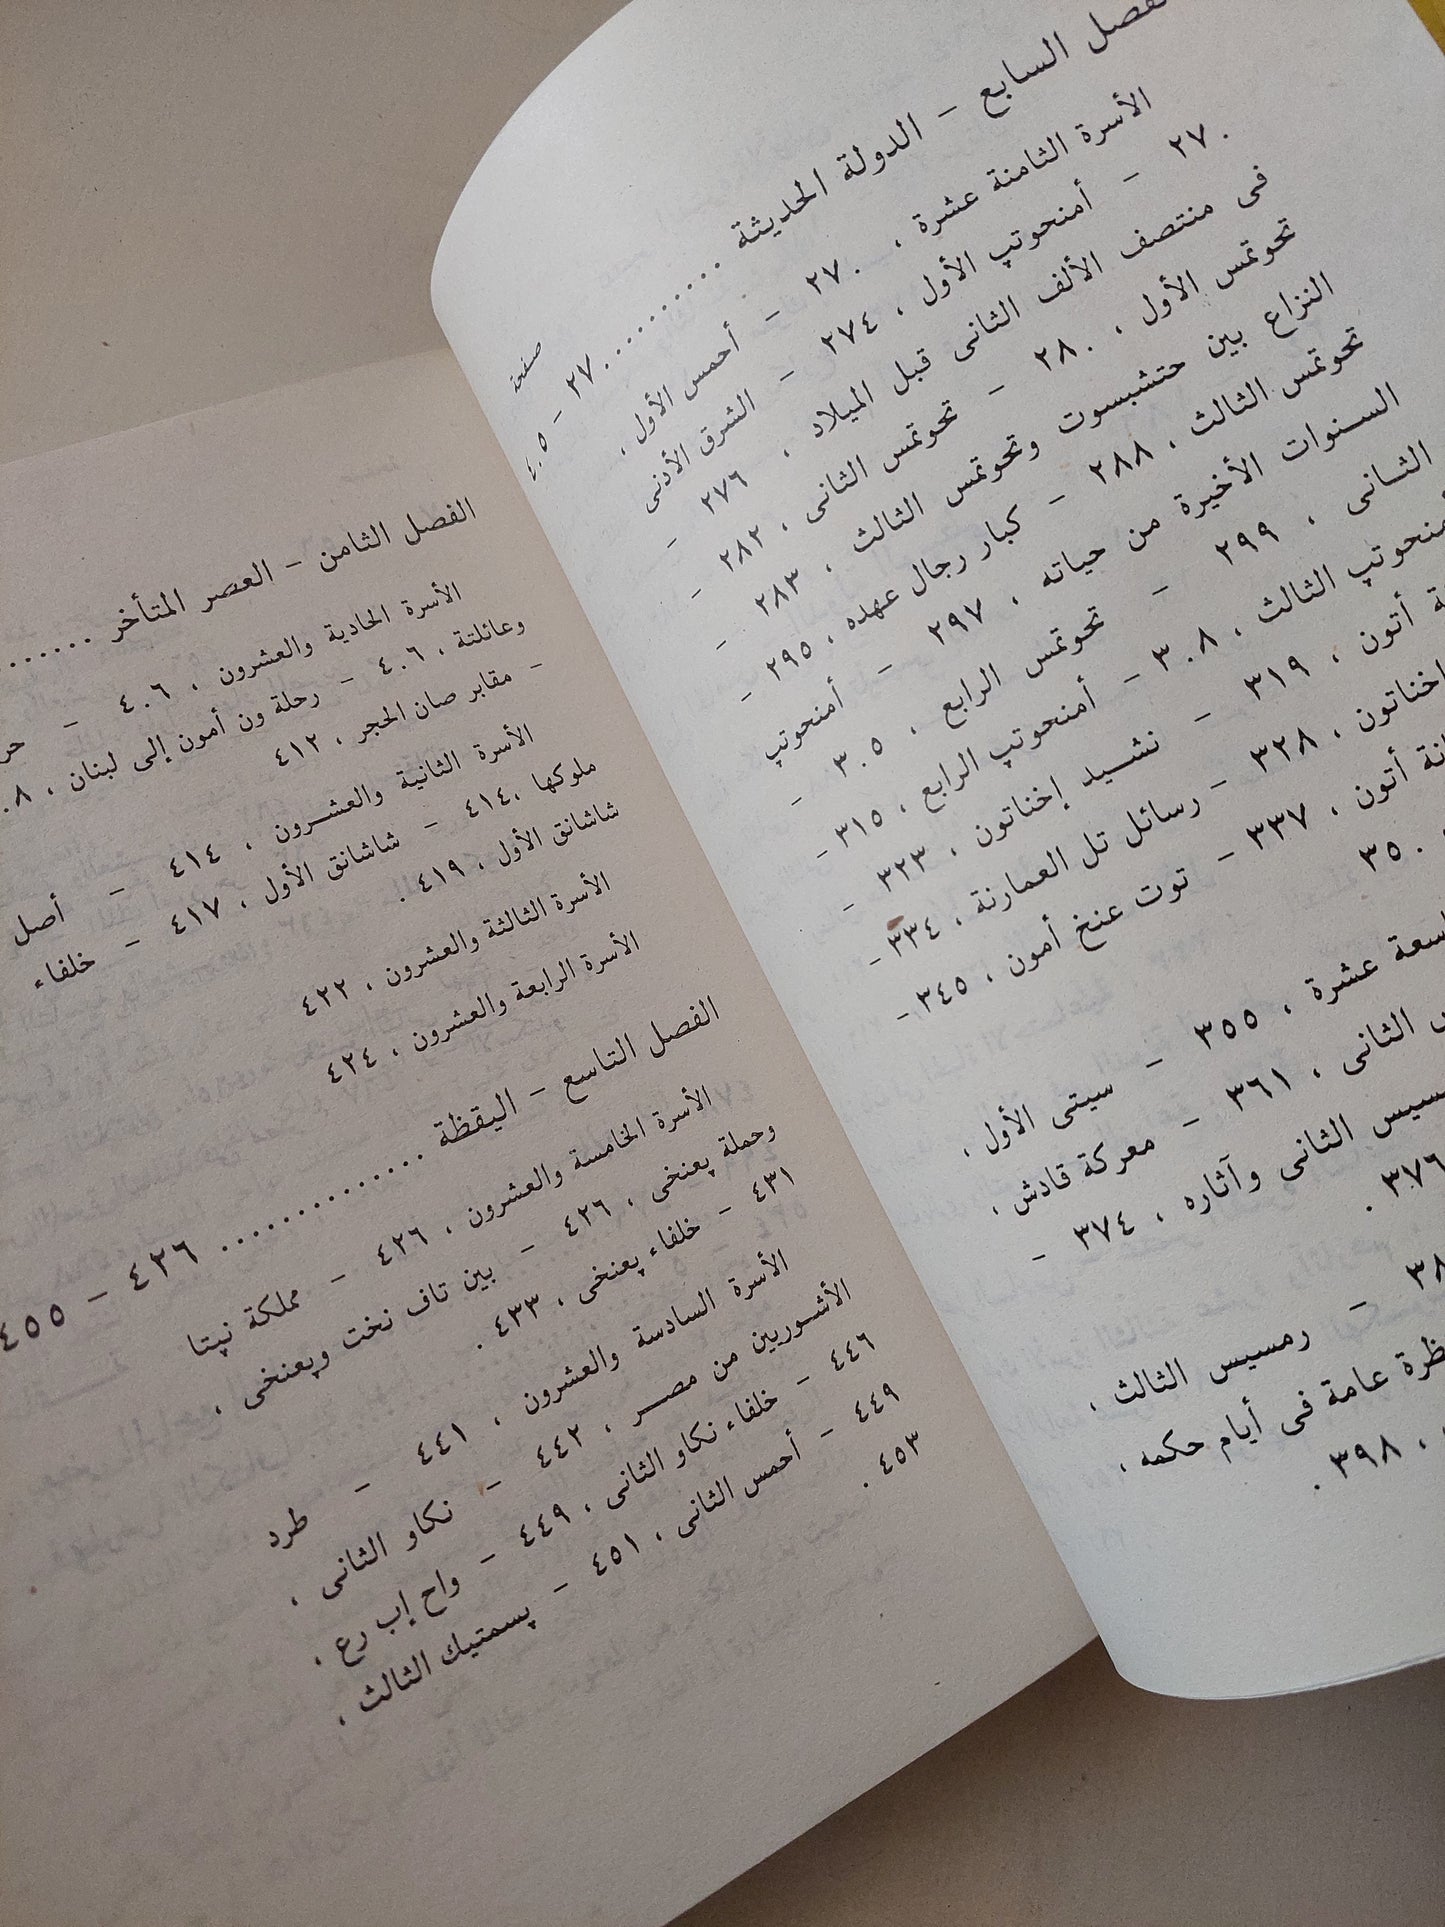 فصل السابع – الدولة الحديثة .......... ٢٧٠ – ٤٠٥
صفحة
الأسرة الثامنة عشرة ، ٢٧٠ – أحمس الأول ،
٢٧٠ – أمنحوتپ الأول ، ٢٧٤ – الشرق الأدنى
فى منتصف الألف الثانى قبل الميلاد ، ٢٧٦ –
تحوتمس الأول ، ٢٨٠ – تحوتمس الثانى ، ٢٨٢ –
النزاع بين حتشبسوت وتحوتمس الثالث ، ٢٨٣ –
تحوتمس الثالث ، ٢٨٨ – كبار رجال عهده ، ٢٩٥ –
السنوات الأخيرة من حياته ، ٢٩٧ – أمنحوتپ
الثانى ، ٢٩٩ – تحوتمس الرابع ، ٣٠٥ –
أمنحوتپ الثالث ، ٣٠٨ – أمنحوتپ الرابع ، ٣١٥ –
أتون ، ٣١٩ – نشيد إخناتون ، ٣٢٣ –
إخناتون ، ٣٢٨ – رسائل تل العمارنة ، ٣٣٤ –
أتون ، ٣٣٧ – توت عنخ أمون ، ٣٤٥ –
، ٣٥٠
عشرة ، ٣٥٥ – سيتى الأول ،
الثانى ، ٣٦١ – معركة قادش ،
الثانى وآثاره ، ٣٧٤ –
٣٧٦ .
– رمسيس الثالث ،
عامة فى أيام حكمه ،
، ٣٩٨ .
الفصل الثامن – العصر المتأخر .......
الأسرة الحادية والعشرون ، ٤٠٦ –
وعائلتة ، ٤٠٦ – رحلة ون أمون إلى لبنان ،
– مقابر صان الحجر ، ٤١٢
الأسرة الثانية والعشرون ، ٤١٤ – أصل
ملوكها ، ٤١٤ – شاشانق الأول ، ٤١٧ – خلفاء
شاشانق الأول ، ٤١٩ .
الأسرة الثالثة والعشرون ، ٤٢٢
الأسرة الرابعة والعشرون ، ٤٢٤
الفصل التاسع – اليقظة .............. ٤٢٦ – ٤٥٥
الأسرة الخامسة والعشرون ، ٤٢٦ – مملكة نپتا
وحملة پعنخى ، ٤٢٦ – بين تاف نخت وپعنخى ،
٤٣١ – خلفاء پعنخى ، ٤٣٣ .
الأسرة السادسة والعشرون ، ٤٤١ – طرد
الأشوريين من مصر ، ٤٤٢ – نكاو الثانى ،
٤٤٦ – خلفاء نكاو الثانى ، ٤٤٩ – واح إب رع ،
٤٤٩ – أحمس الثانى ، ٤٥١ – پسمتيك الثالث ،
٤٥٣ .